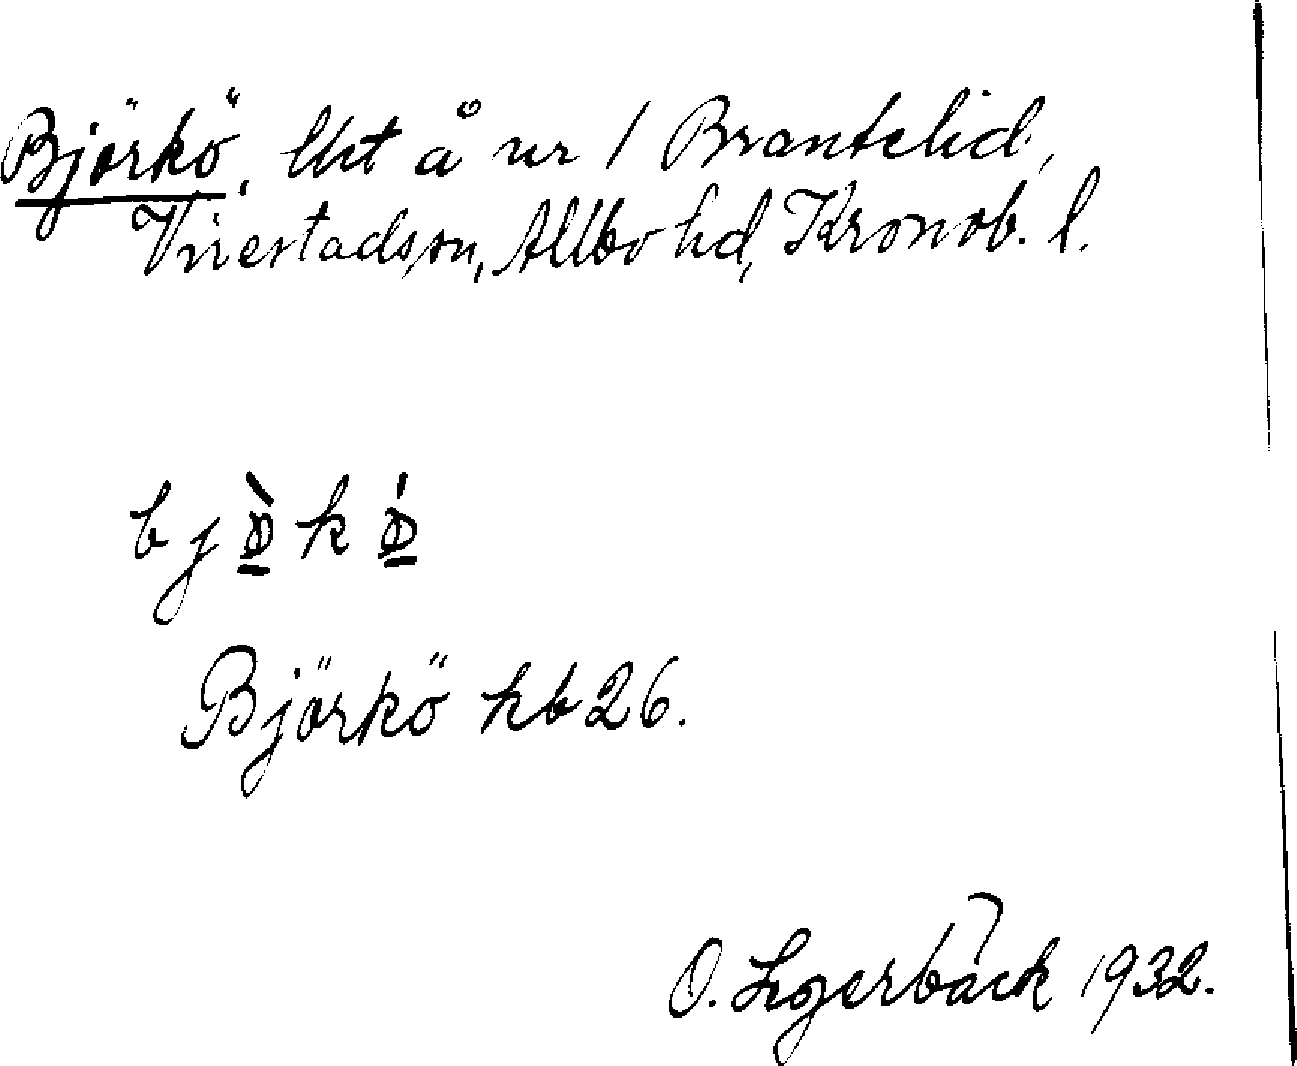 Björkö. Uet å nr 1 Brantelid,
Virestads sn, Allbo hd, Kronob. l.
bjö̀kö́
Björkö hb 26.
O. Legerbäck 1932.